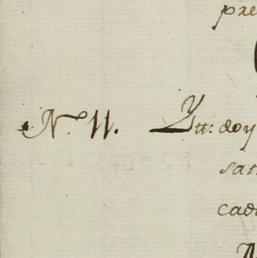 pre
N.º 11. Ytt: doy
san
cad